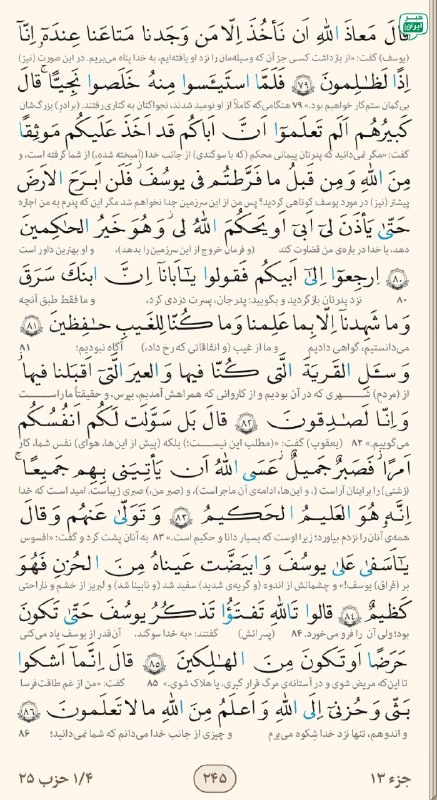 هنر ایران
قَالَ مَعَاذَ اللهِ اَن نَأخُذَ اِلّا مَن وَجَدنا مَتاعَنا عِندَهُ اِنّا
(یوسف) گفت: «از بازداشت کسی جز آن که وسیله‌مان را نزد او یافته‌ایم، به خدا پناه می‌بریم. در این صورت (نیز)
اِذًا لَظالِمونَ ۷۹ فَلَمَّا استَیئَسوا مِنهُ خَلَصوا نَجِیًّا قالَ
بی‌گمان ستم‌کار خواهیم بود.» ۷۹ هنگامی‌که کاملاً از او نومید شدند، نجواکنان به کناری رفتند. (برادر) بزرگ‌شان
کَبیرُهُم اَلَم تَعلَموا اَنَّ اَباکُم قَد اَخَذَ عَلَیکُم مَوثِقًا
گفت: «مگر نمی‌دانید که پدرتان پیمانی محکم (که با سوگندی) از جانب خدا (آمیخته شده،) از شما گرفته است، و
مِنَ اللهِ وَ مِن قَبلُ ما فَرَّطتُم فی یوسُفَ فَلَن اَبرَحَ الاَرضَ
پیشتر (نیز) در مورد یوسف کوتاهی کردید؟ پس من از این سرزمین جدا نخواهم شد مگر این که پدرم به من اجازه
حَتّیٰ یَأذَنَ لی اَبی اَو یَحکُمَ اللهُ لی وَ هُوَ خَیرُ الحاکِمینَ
دهد، یا خدا در باره‌ی من قضاوت کند (و فرمان خروج از این سرزمین را بدهد)، و او بهترین داور است
۸۰ اِرجِعوا اِلیٰ اَبیکُم فَقولوا یا اَبانا اِنَّ ابنَکَ سَرَقَ
۸۰ نزد پدرتان بازگردید و بگویید: پدرجان، پسرت دزدی کرد، و ما فقط طبق آنچه
وَ ما شَهِدنا اِلّا بِما عَلِمنا وَ ما کُنّا لِلغَیبِ حافِظینَ ۸۱
می‌دانستیم، گواهی دادیم و ما از غیب (و اتفاقاتی که رخ داد،) آگاه نبودیم؛ ۸۱
وَ سئَلِ القَریَةَ الَّتی کُنّا فیها وَ العیرَ الَّتی اَقبَلنا فیها
از (مردم) شهری که در آن بودیم و از کاروانی که همراهش آمدیم، بپرس، و حقیقتاً ما راست
وَ اِنّا لَصادِقونَ ۸۲ قالَ بَل سَوَّلَت لَکُم اَنفُسُکُم
می‌گوییم.» ۸۲ (یعقوب) گفت: «(مطلب این نیست؛) بلکه (پیش از این‌ها، هوای) نفس شما، کار
اَمرًا فَصَبرٌ جَمیلٌ عَسَی اللهُ اَن یَأتِیَنی بِهِم جَمیعًا
(زشتی) را برایتان آراست (. و این‌ها، ادامه‌ی آن ماجراست)، و (صبر من،) صبری زیباست. امید است که خدا
اِنَّهُ هُوَ العَلیمُ الحَکیمُ ۸۳ وَ تَوَلّیٰ عَنهُم وَ قالَ
همه‌ی آنان را نزدم بیاورد؛ زیرا اوست که بسیار دانا و حکیم است.» ۸۳ به آنان پشت کرد و گفت: «افسوس
یا اَسَفیٰ عَلیٰ یوسُفَ وَ ابیَضَّت عَیناهُ مِنَ الحُزنِ فَهُوَ
بر (فراق) یوسف!» و چشمانش از اندوه (و گریه‌ی شدید) سفید شد (و نابینا شد) و لبریز از خشم و ناراحتی
کَظیمٌ ۸۴ قالوا تَاللهِ تَفتَؤُا تَذکُرُ یوسُفَ حَتّیٰ تَکونَ
بود؛ ولی آن را فرو می‌خورد. ۸۴ (پسرانش) گفتند: «به خدا سوگند، آن‌قدر از یوسف یاد می‌کنی
حَرَضًا اَو تَکونَ مِنَ الهالِکینَ ۸۵ قالَ اِنَّما اَشکوا
تا این‌که مریض شوی و در آستانه‌ی مرگ قرار گیری، یا هلاک شوی.» ۸۵ گفت: «من از غم طاقت‌فرسا
بَثّی وَ حُزنی اِلَی اللهِ وَ اَعلَمُ مِنَ اللهِ ما لا تَعلَمونَ ۸۶
و اندوهم، تنها نزد خدا شِکوه می‌برم و چیزی از جانب خدا می‌دانم که شما نمی‌دانید؛ ۸۶
جزء ۱۳ ۲۴۵ ۱/۴ حزب ۲۵